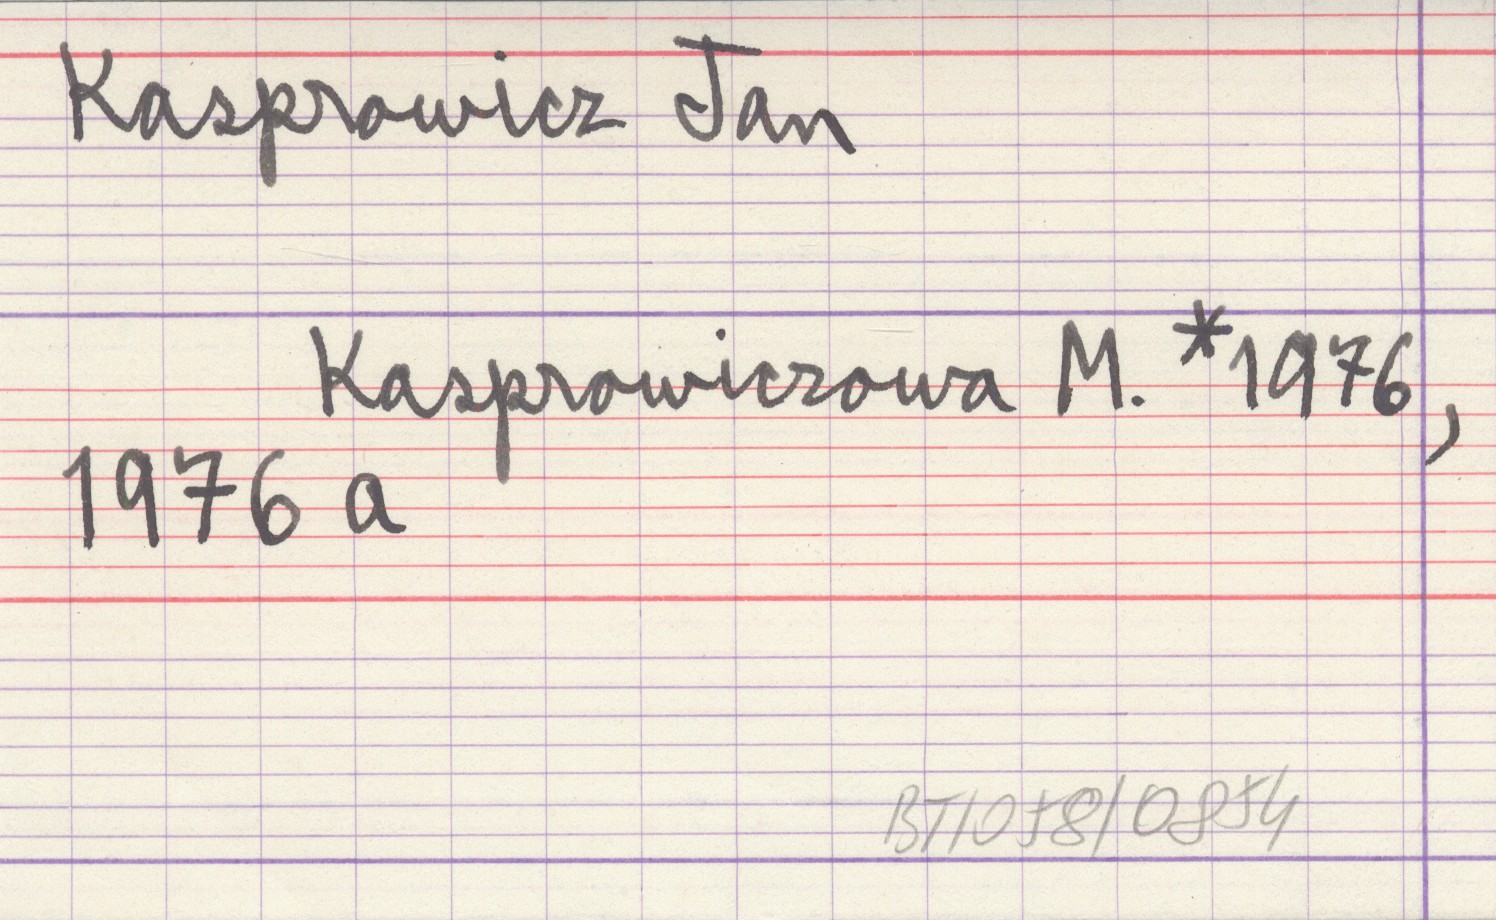 Kasprowicz Jan
Kasprowiczowa M. *1976,
1976 a
BT/058/0854